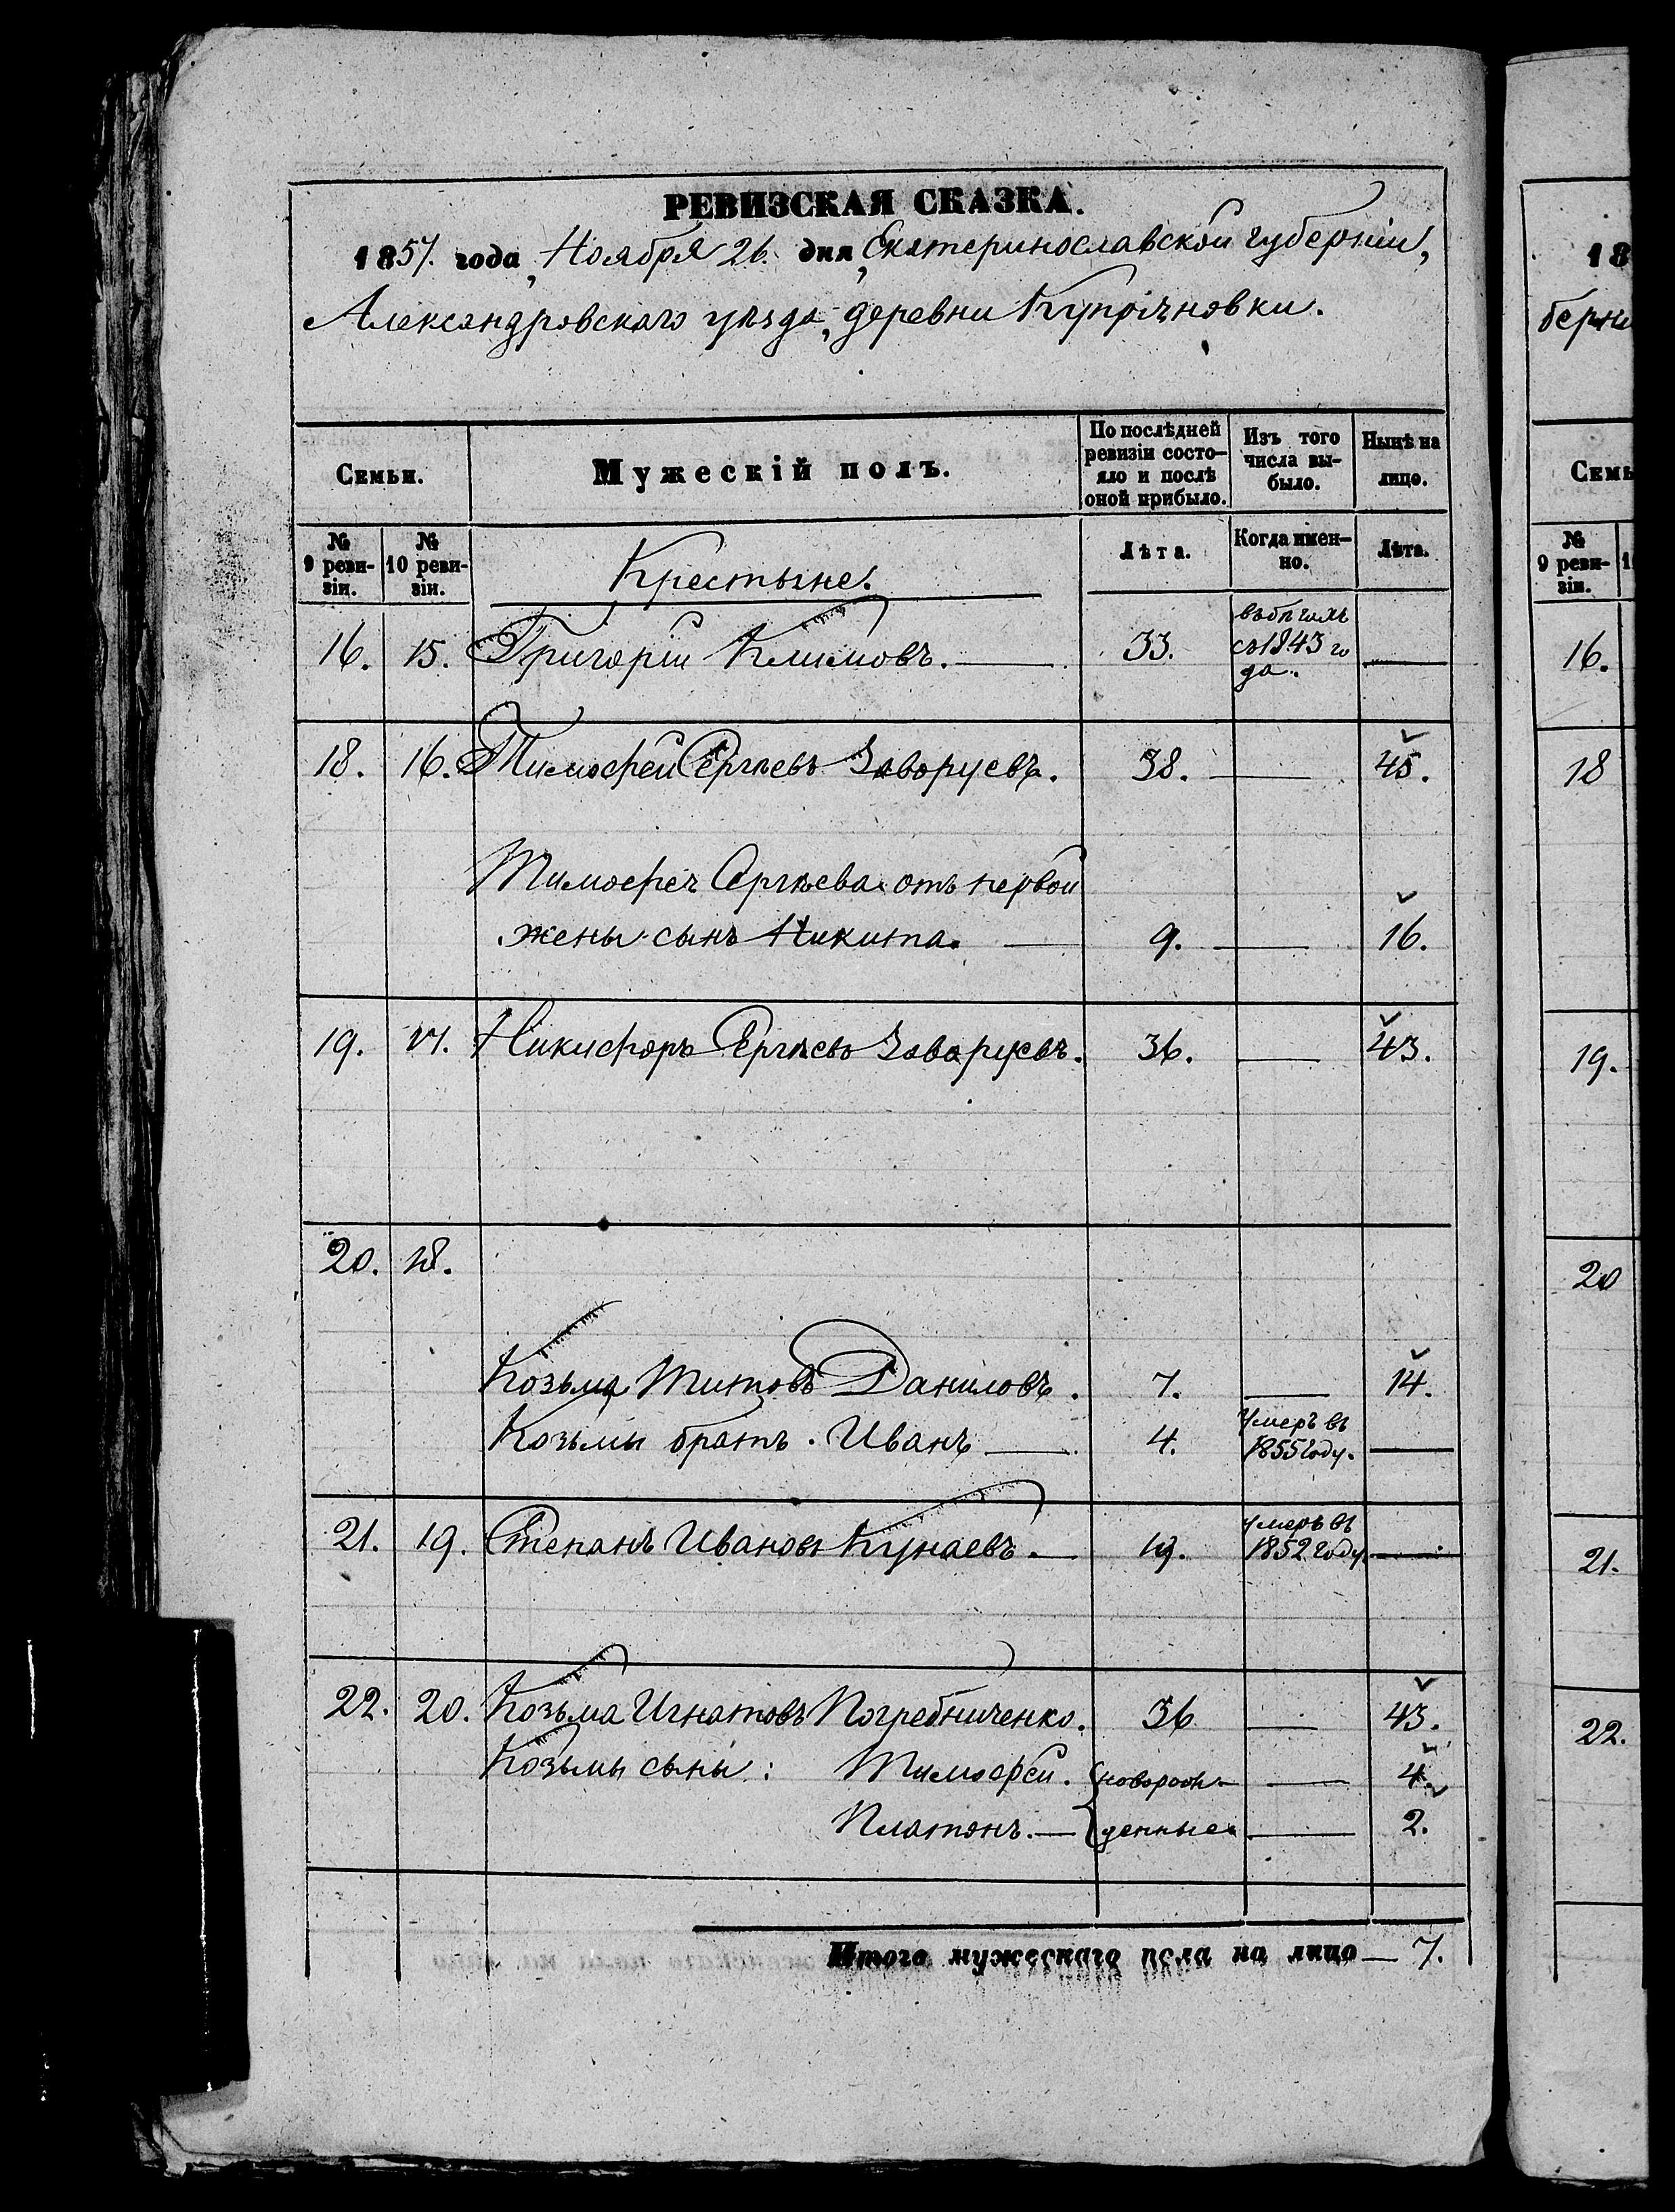 РЕВИЗСКАЯ СКАЗКА.
1857. года, Ноября 26. дня, Екатеринославской губернiи,
Александровскаго уѣзда, деревни Купрѣяновки.
Семьи.
Мужескiй полъ.
По послѣдней ревизiи состо-
яло и послѣ оной прибыло.
Изъ того числа вы-
было.
Нынѣ на лицо.
№ 9 реви-
зiи.
№ 10 реви-
зiи.
Крестьяне.
Лѣта.
Когда имен-
но.
Лѣта.
16. 15. Григорiй Климовъ. — 33. въ бѣгахъ съ 1843 го
да. —
18. 16. Тимофей Сергѣевъ Заворуевъ. 38. — 45.
Тимофея Сергѣева отъ первой
жены сынъ Никита. — 9. — 16.
19. 17. Никифоръ Сергѣевъ Заворуевъ. 36. — 43.
20. 18.
Козьма Титовъ Даниловъ. 7. — 14.
Козьмы братъ. Иванъ — 4. Умеръ въ 1855 году. —
21. 19. Степанъ Ивановъ Кунаевъ. — 19. умеръ въ 1852 году. —
22. 20. Козьма Игнатовъ Погребниченко. 36 — 43.
Козьмы сыны: Тимофей. новорож- — 4.
Платонъ. — денные. — 2.
Итого мужескаго пола на лицо — 7.
18
берни
Семь
№ 9 реви-
зiи.
1
16.
18
19.
20
21.
22.